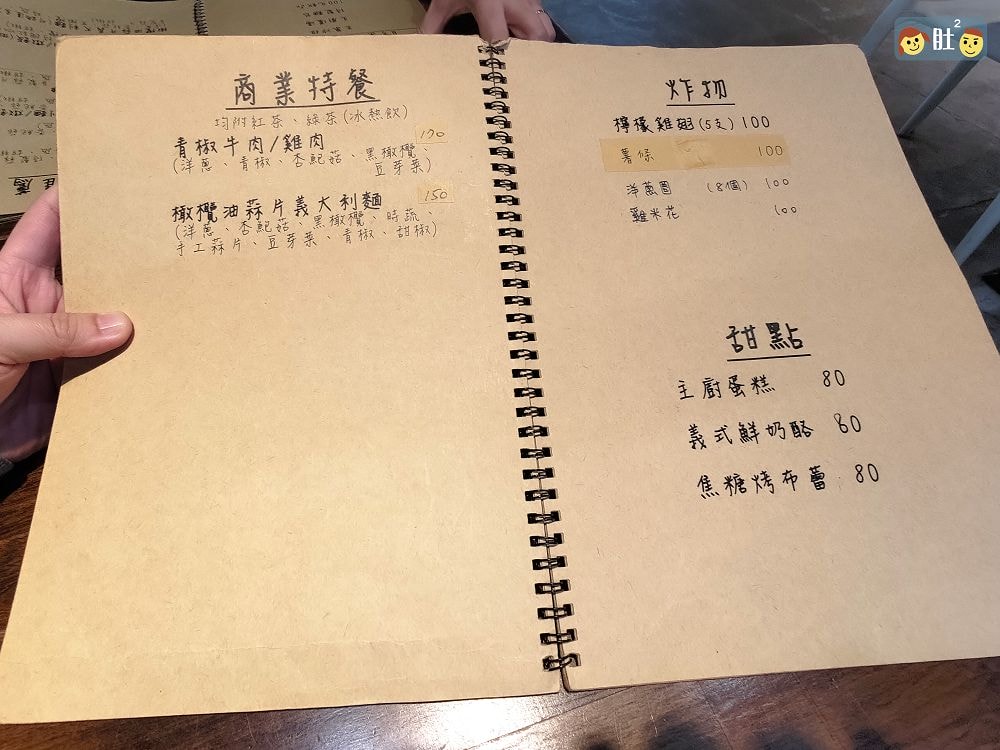 商業特餐
均附紅茶、綠茶(冰熱飲)
青椒牛肉/雞肉
(洋蔥、青椒、杏鮑菇、黑橄欖、
豆芽菜)
橄欖油蒜片義大利麵 150
(洋蔥、杏鮑菇、黑橄欖、時蔬、
手工蒜片、豆芽菜、青椒、甜椒)
炸物
檸檬雞翅(5支) 100
薯條 100
洋蔥圈 (8個) 100
雞米花 100
甜點
主廚蛋糕 80
義式鮮奶酪 80
焦糖烤布蕾 80
肚2